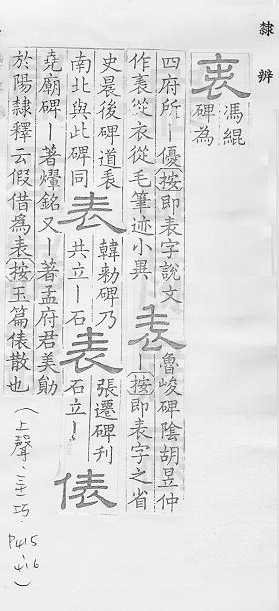 隸辨
表
馮緄
碑為
四府所丨優按即表字說文
作𧘝從衣從毛筆迹小異
表
魯峻碑陰胡昱仲
丨按即表字之省
史晨後碑道表
南北與此碑同
表
韓勑碑乃
共立丨石
表
張遷碑刊
石立丨
俵
堯廟碑丨著燿銘又丨著孟府君美勛
於陽隸釋云假借爲表按玉篇俵散也
(上聲 巧 P415 416)